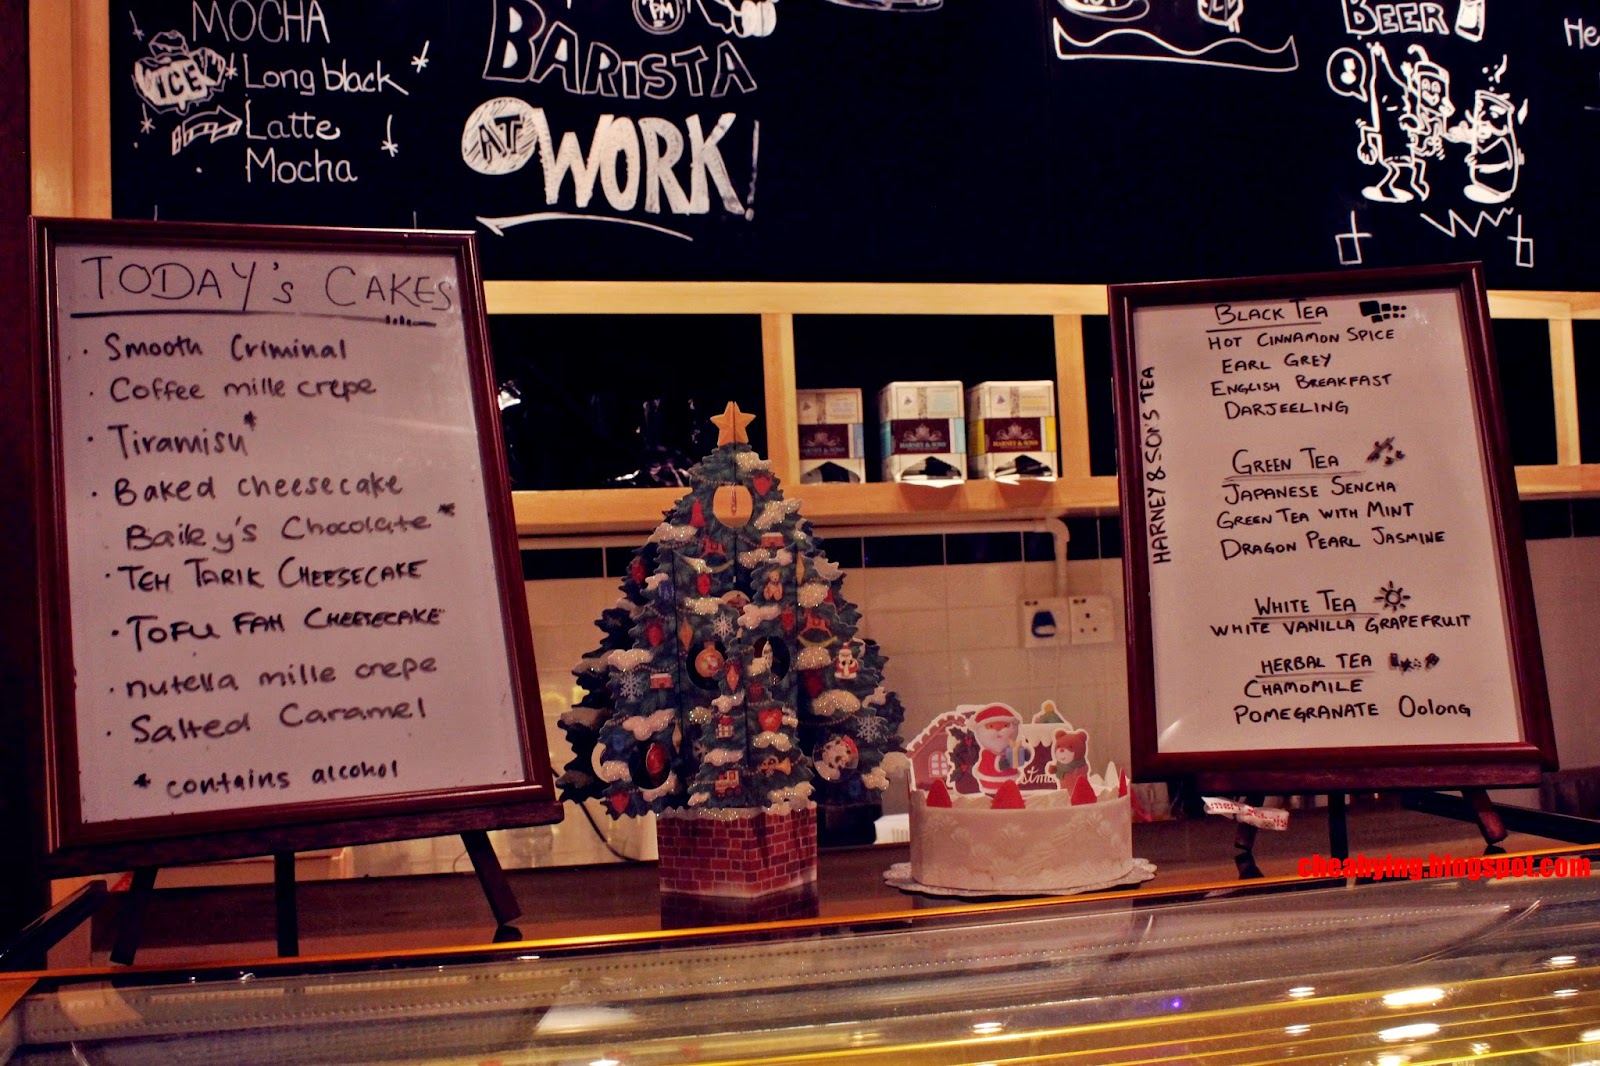 MOCHA
ICE
Long black
Latte
Mocha
BARISTA
AT WORK!
BEER
He
TODAY's CAKES
· Smooth Criminal
· Coffee mille crepe
· Tiramisu*
· Baked cheesecake
Bailey's Chocolate*
· TEH TARIK CHEESECAKE
· TOFU FAH CHEESECAKE
· nutella mille crepe
· Salted Caramel
* contains alcohol
HARNEY & SONS
HARNEY & SONS
HARNEY & SONS
HARNEY & SON'S TEA
BLACK TEA
HOT CINNAMON SPICE
EARL GREY
ENGLISH BREAKFAST
DARJEELING
GREEN TEA
JAPANESE SENCHA
GREEN TEA WITH MINT
DRAGON PEARL JASMINE
WHITE TEA
WHITE VANILLA GRAPEFRUIT
HERBAL TEA
CHAMOMILE
POMEGRANATE Oolong
cheahying.blogspot.com